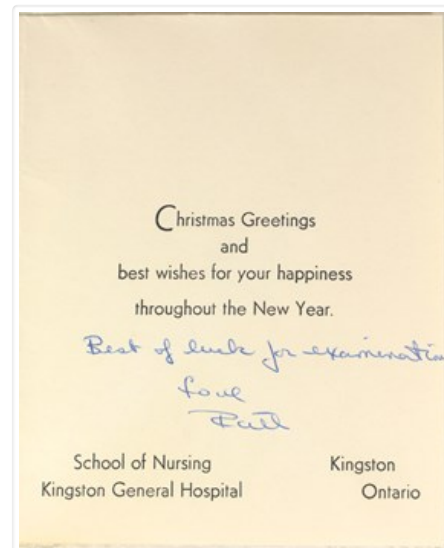 Christmas Greetings
and
best wishes for your happiness
throughout the New Year.
Best of luck for examination
Love
School of Nursing Kingston
Kingston General Hospital Ontario